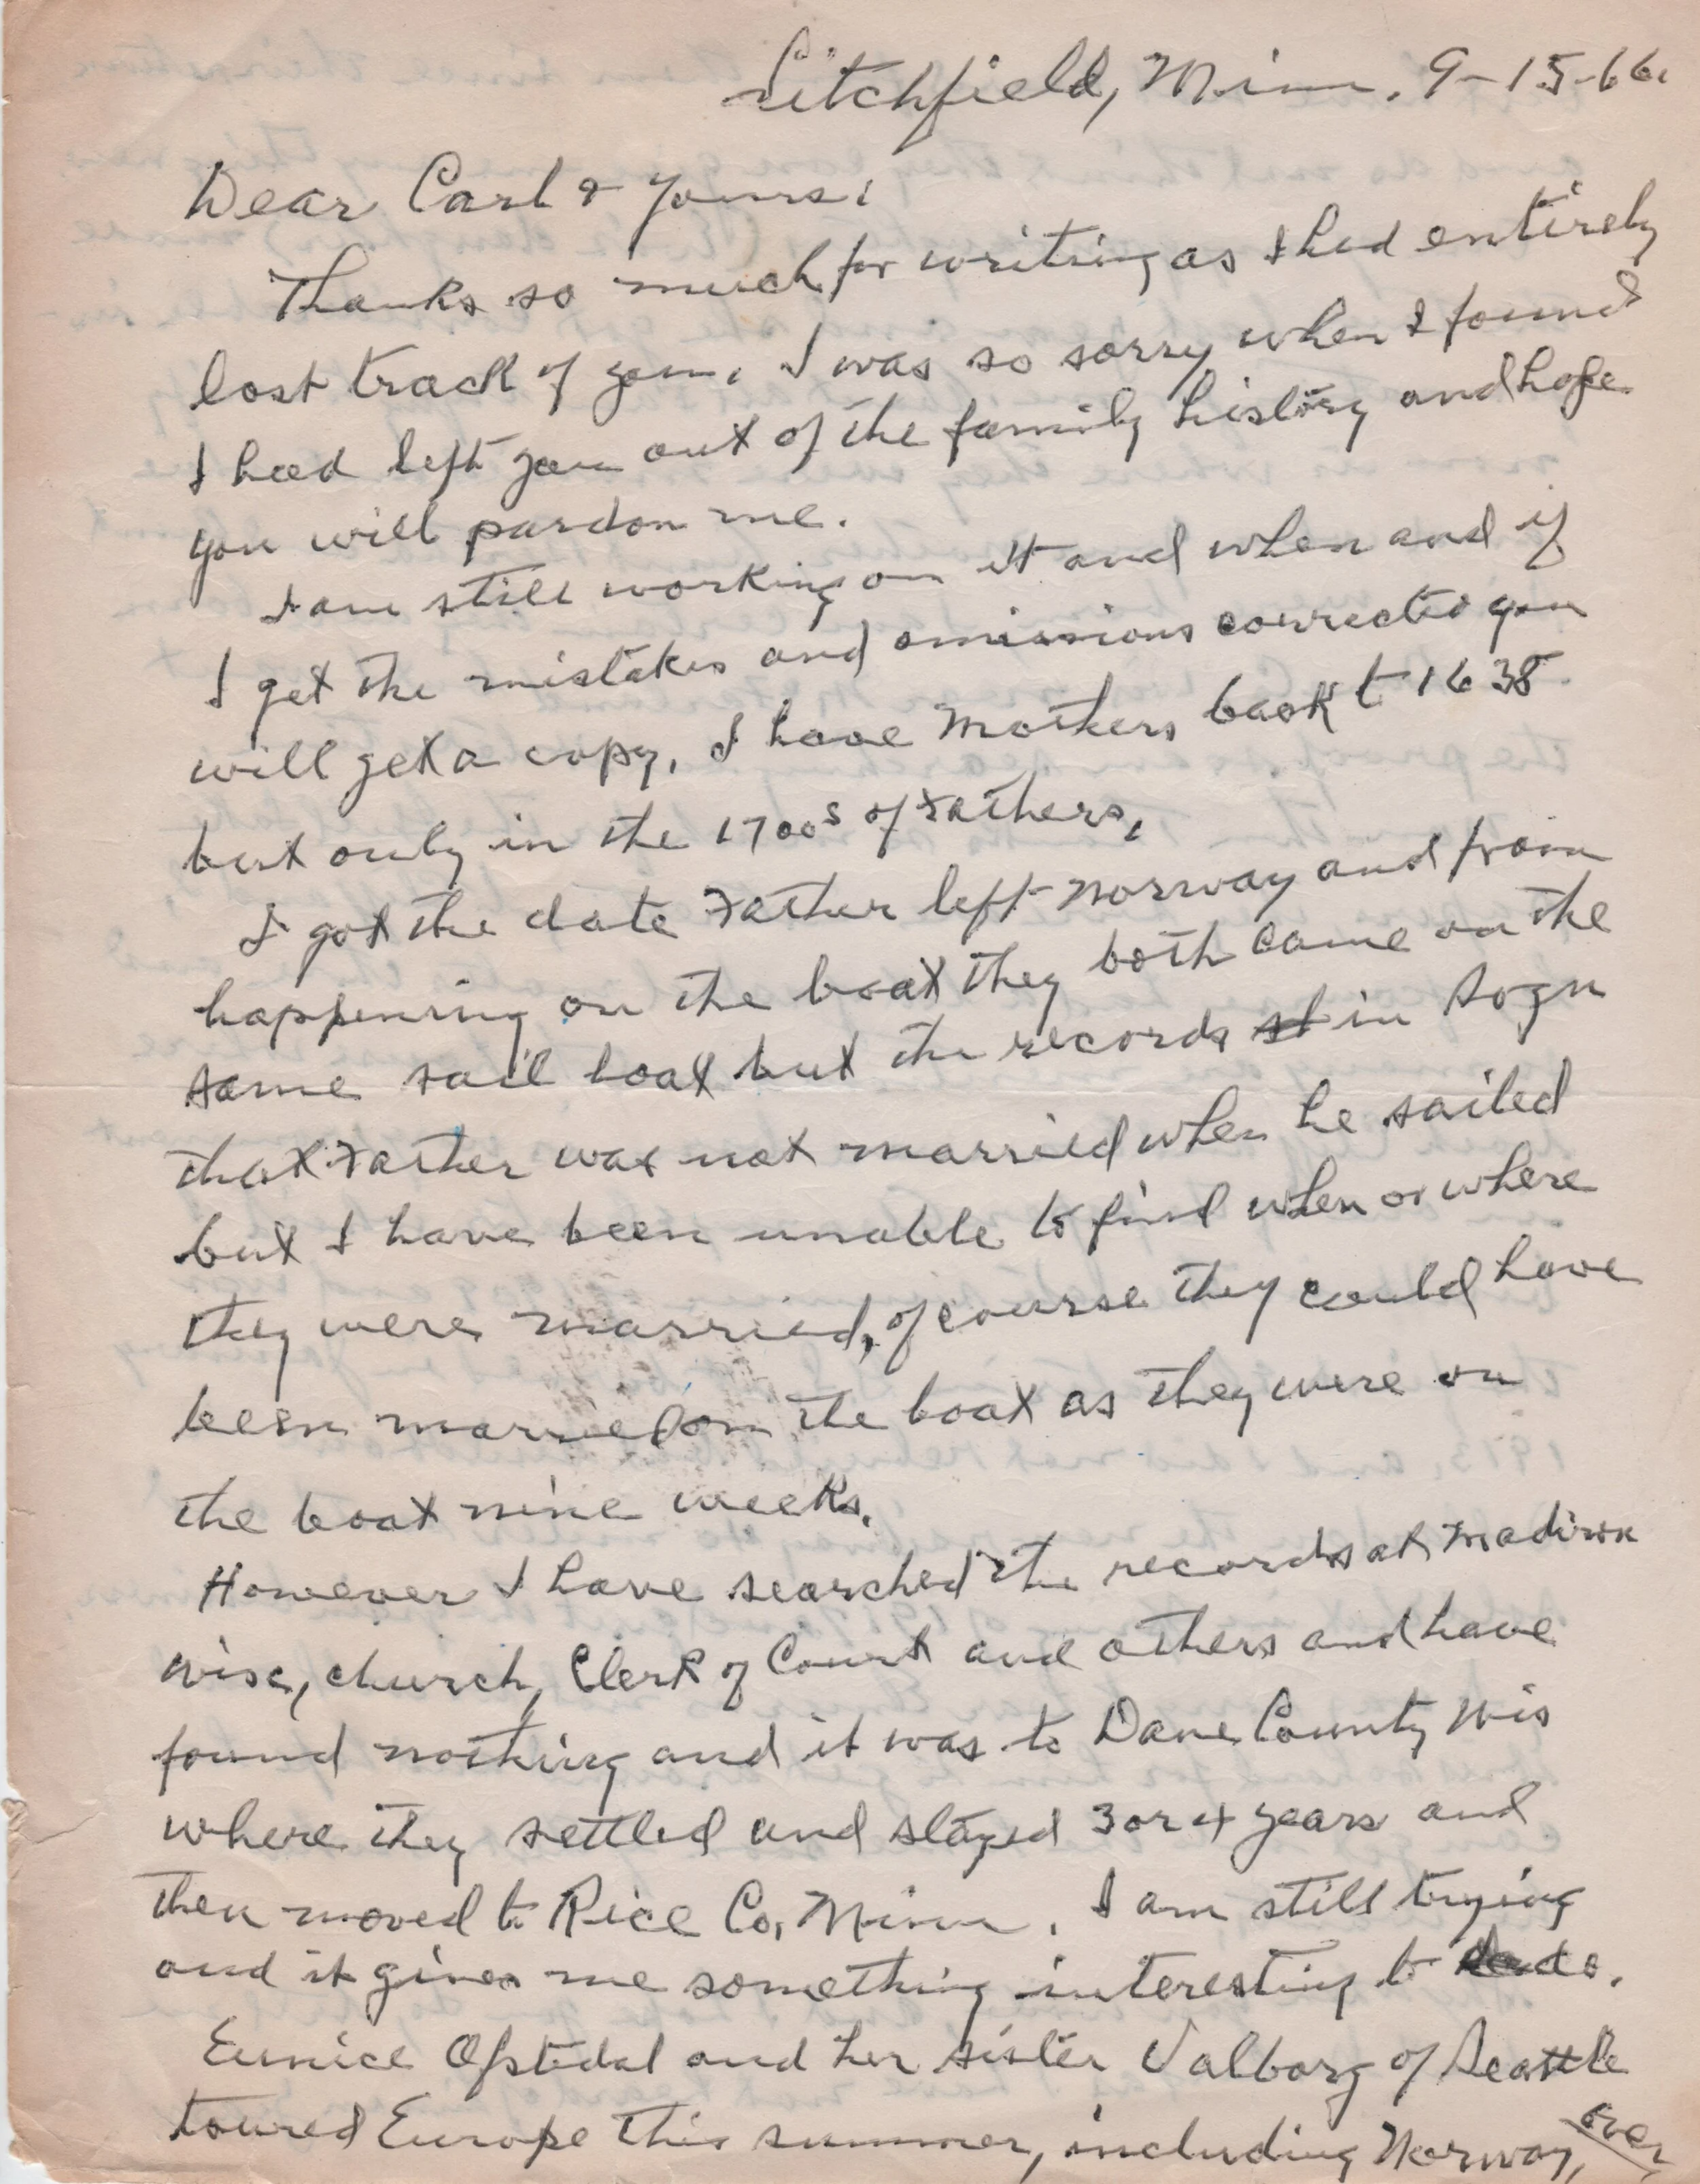 Litchfield, Minn. 9-15-66.
Dear Carl & yours:
Thanks so much for writing as I had entirely
lost track of you. I was so sorry when I found
I had left you out of the family history and hope
you will pardon me.
I am still working on it and when and if
I get the mistakes and omissions corrected you
will get a copy. I have Mothers back to 1638
but only in the 1700s of Fathers.
I got the date Father left Norway and from
happening on the boat they both came on the
same sail boat but the records in Sogn
that Father was not married when he sailed
but I have been unable to find when or where
they were married, of course they could have
been married on the boat as they were on
the boat nine weeks.
However I have searched the records at Madison
Wisc, church, Clerk of Court and others and have
found nothing and it was to Dane County Wis
where they settled and stayed 3 or 4 years and
then moved to Rice Co, Minn. I am still trying
and it gives me something interesting to do.
Eunice Ofstedal and her sister Valborg of Seattle
toured Europe this summer, including Norway,
over